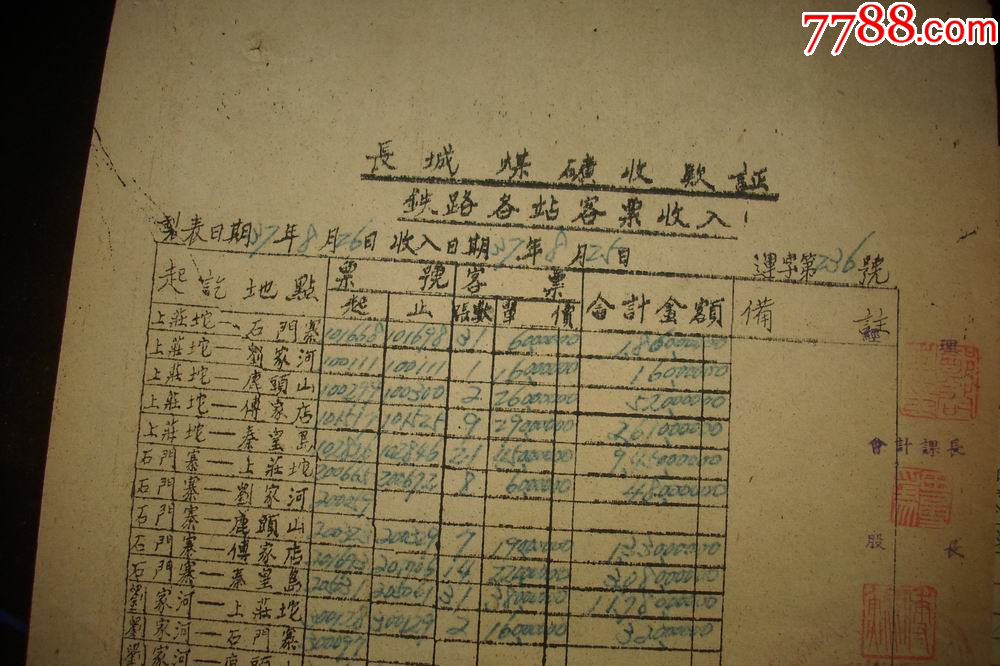 7788.com
長城煤礦收欵証
鉄路各站客票收入
製表日期37年8月26日 收入日期37年8月25日
運字第236號
起訖地點 票號 客票 會計金額 備註
起 止 張數 單價
上莊坨——石門寨 101668 101698 31 6000000 186000000
上莊坨——劉家河 100111 100111 1 16000000 16000000
上莊坨——鹿頭山 100299 100300 2 26000000 52000000
上莊坨——傅家店 101517 101525 9 29000000 261000000
上莊坨——秦皇島 21 45000000 945000000
石門寨——上莊坨 200665 200672 8 6000000 48000000
石門寨——劉家河
石門寨——鹿頭山 7 19000000 133000000
石門寨——傅家店 14 22000000 308000000
石門寨——秦皇島 31 38000000 1178000000
劉家河——上莊坨 2 16000000 32000000
劉家河——石門寨
劉家河
經理
會計課長
股長